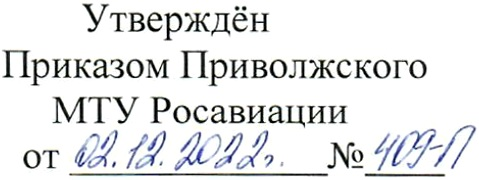 Утверждён
Приказом Приволжского
МТУ Росавиации
от 02.12.2022г. № 409-П